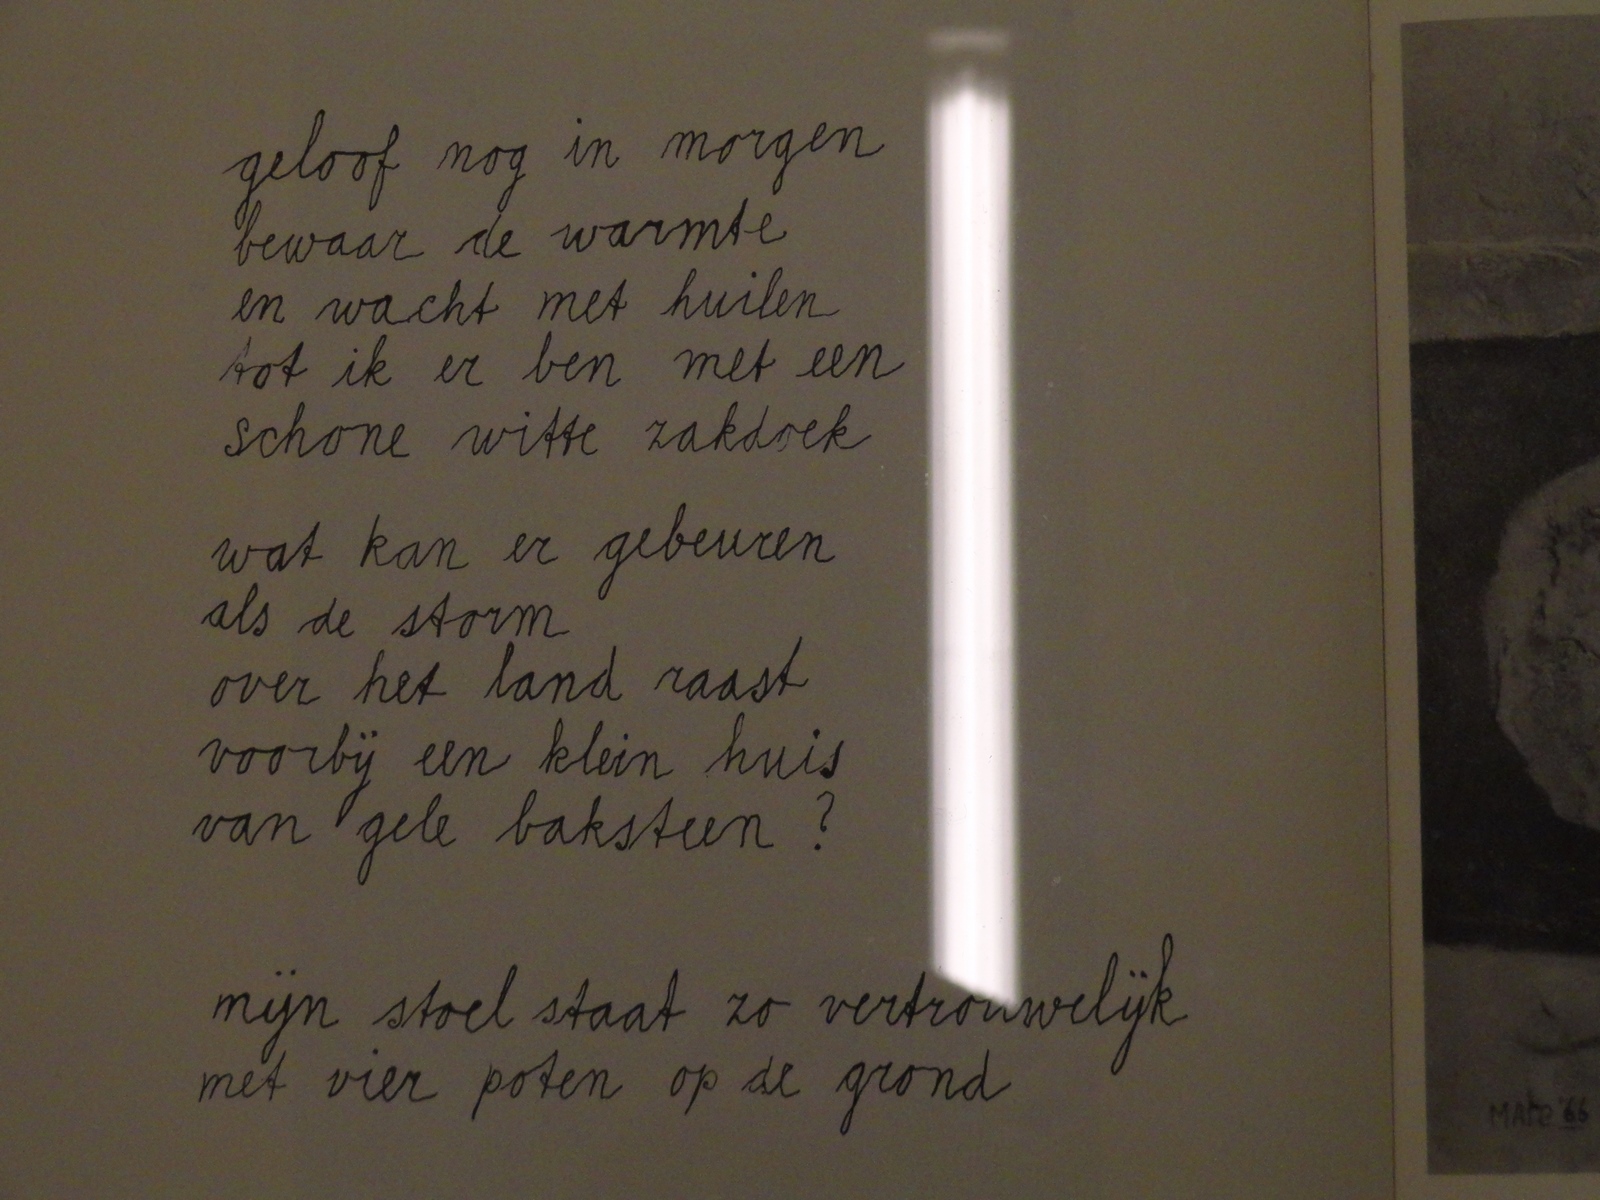 geloof nog in morgen
bewaar de warmte
en wacht met huilen
tot ik er ben met een
schone witte zakdoek
wat kan er gebeuren
als de storm
over het land raast
voorbij een klein huis
van gele baksteen ?
mijn stoel staat zo vertrouwelijk
met vier poten op de grond
'66